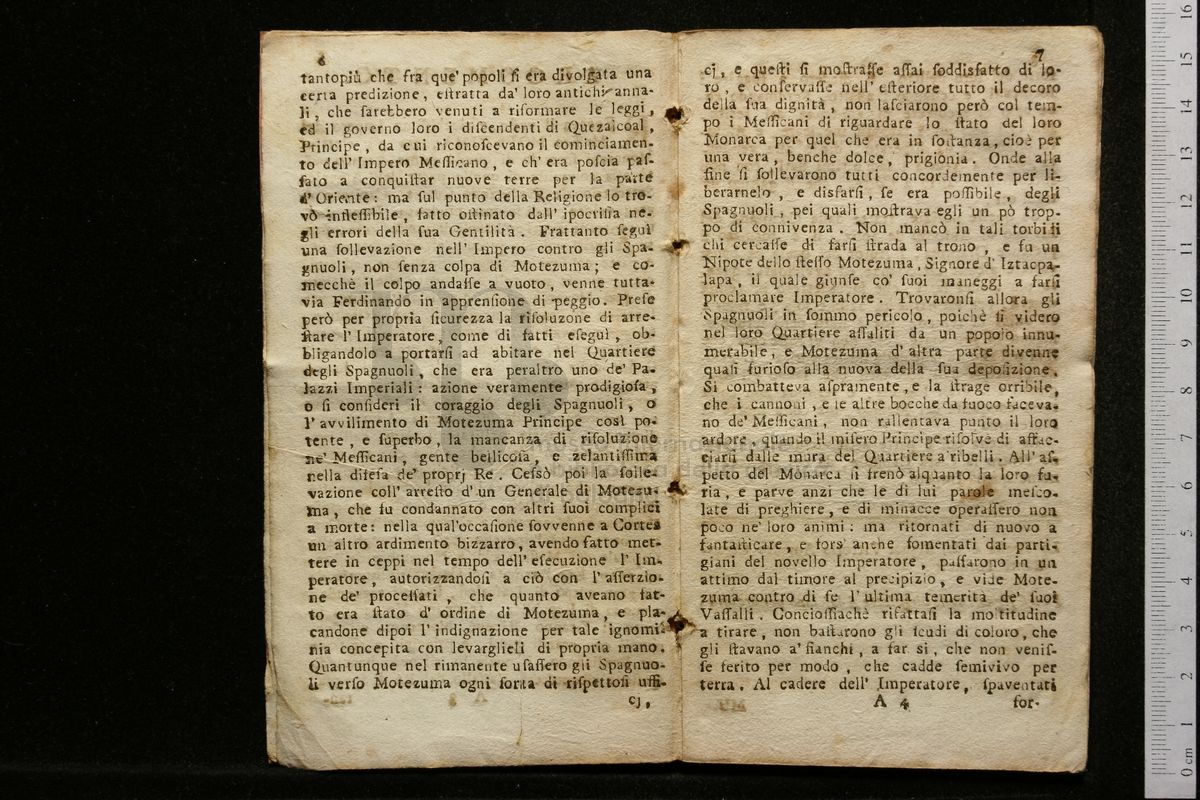 6
tantopiù che fra que' popoli ſi era divolgata una
certa predizione, eſtratta da' loro antichi anna-
li, che ſarebbero venuti a riformare le leggi,
ed il governo loro i diſcendenti di Quezalcoal,
Principe, da cui riconoſcevano il cominciamen-
to dell' Impero Meſſicano, e ch' era poſcia paſ-
ſato a conquiſtar nuove terre per la parte
d' Oriente: ma ſul punto della Religione lo tro-
vò infleſſibile, fatto oſtinato dall' ipocriſia ne-
gli errori della ſua Gentilità. Frattanto ſeguì
una ſollevazione nell' Impero contro gli Spa-
gnuoli, non ſenza colpa di Motezuma; e co-
mecchè il colpo andaſſe a vuoto, venne tutta-
via Ferdinando in apprenſione di peggio. Preſe
però per propria ſicurezza la riſoluzone di arre-
ſtare l' Imperatore, come di fatti eſeguì, ob-
bligandolo a portarſi ad abitare nel Quartiere
degli Spagnuoli, che era peraltro uno de' Pa-
lazzi Imperiali: azione veramente prodigioſa,
o ſi conſideri il coraggio degli Spagnuoli, o
l' avvilimento di Motezuma Principe così po-
tente, e ſuperbo, la mancanza di riſoluzione
ne' Meſſicani, gente bellicoſa, e zelantiſſima
nella difeſa de' proprj Re. Ceſsò poi la ſolle-
vazione coll' arreſto d' un Generale di Motezu-
ma, che fu condannato con altri ſuoi complici
a morte: nella qual'occaſione ſovvenne a Cortes
un altro ardimento bizzarro, avendo fatto met-
tere in ceppi nel tempo dell' eſecuzione l' Im-
peratore, autorizzandoſi a ciò con l' aſſerzio-
ne de' proceſſati, che quanto aveano fat-
to era ſtato d' ordine di Motezuma, e pla-
candone dipoi l' indignazione per tale ignomi-
nia concepita con levarglieli di propria mano.
Quantunque nel rimanente uſaſſero gli Spagnuo-
li verſo Motezuma ogni ſorta di riſpettoſi uffi-
cj,
7
cj, e queſti ſi moſtraſſe aſſai ſoddisfatto di lo-
ro, e conſervaſſe nell' eſteriore tutto il decoro
della ſua dignità, non laſciarono però col tem-
po i Meſſicani di riguardare lo ſtato del loro
Monarca per quel che era in ſoſtanza, cioè per
una vera, benche dolce, prigionia. Onde alla
fine ſi ſollevarono tutti concordemente per li-
berarnelo, e disfarſi, ſe era poſſibile, degli
Spagnuoli, pei quali moſtrava egli un pò trop-
po di connivenza. Non mancò in tali torbidi
chi cercaſſe di farſi ſtrada al trono, e fu un
Nipote dello ſteſſo Motezuma, Signore d' Iztacpa-
lapa, il quale giunſe co' ſuoi maneggi a farſi
proclamare Imperatore. Trovaronſi allora gli
Spagnuoli in ſommo pericolo, poichè ſi videro
nel loro Quartiere aſſaliti da un popolo innu-
merabile, e Motezuma d' altra parte divenne
quaſi furioſo alla nuova della ſua depoſizione.
Si combatteva aſpramente, e la ſtrage orribile,
che i cannoni, e le altre bocche da fuoco faceva-
no de' Meſſicani, non rallentava punto il loro
ardore, quando il miſero Principe riſolvè di affac-
ciarſi dalle mura del Quartiere a'ribelli. All' aſ-
petto del Monarca ſi frenò alquanto la loro fu-
ria, e parve anzi che le di lui parole meſco-
late di preghiere, e di minacce operaſſero non
poco ne' loro animi: ma ritornati di nuovo a
fantaſticare, e fors' anche fomentati dai parti-
giani del novello Imperatore, paſſarono in un
attimo dal timore al precipizio, e vide Mote-
zuma contro di ſe l' ultima temerità de' ſuoi
Vaſſalli. Concioſſiachè rifattaſi la moltitudine
a tirare, non baſtarono gli ſcudi di coloro, che
gli ſtavano a' fianchi, a far sì, che non veniſ-
ſe ferito per modo, che cadde ſemivivo per
terra. Al cadere dell' Imperatore, ſpaventati
A 4
for-
0 cm 1 2 3 4 5 6 7 8 9 10 11 12 13 14 15 16